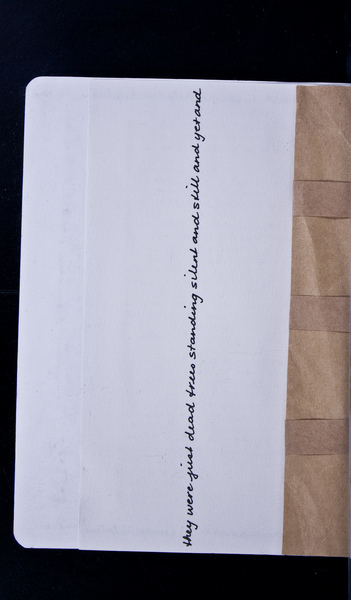 they were just dead trees standing silent and still and yet and